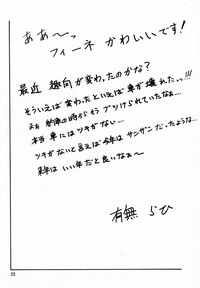 ああ〜っ
フィーネ かわいいです!
最近 趣向が変わったのかな?
そういえば変わったといえば車が壊れたっ…!!!
本当 車にはツキがない…
ツキがないと言えば今年はサンザンだったような…
来年はいい年だと良いなぁ〜
有無 らひ
23